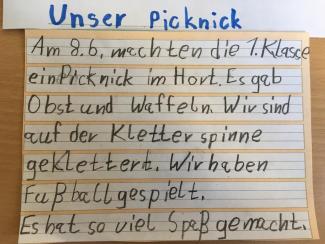 Unser Picknick
Am 8.6. machten die 1. Klasse
ein Picknick im Hort. Es gab
Obst und Waffeln. Wir sind
auf der Kletterspinne
geklettert. Wir haben
Fußball gespielt.
Es hat so viel Spaß gemacht.